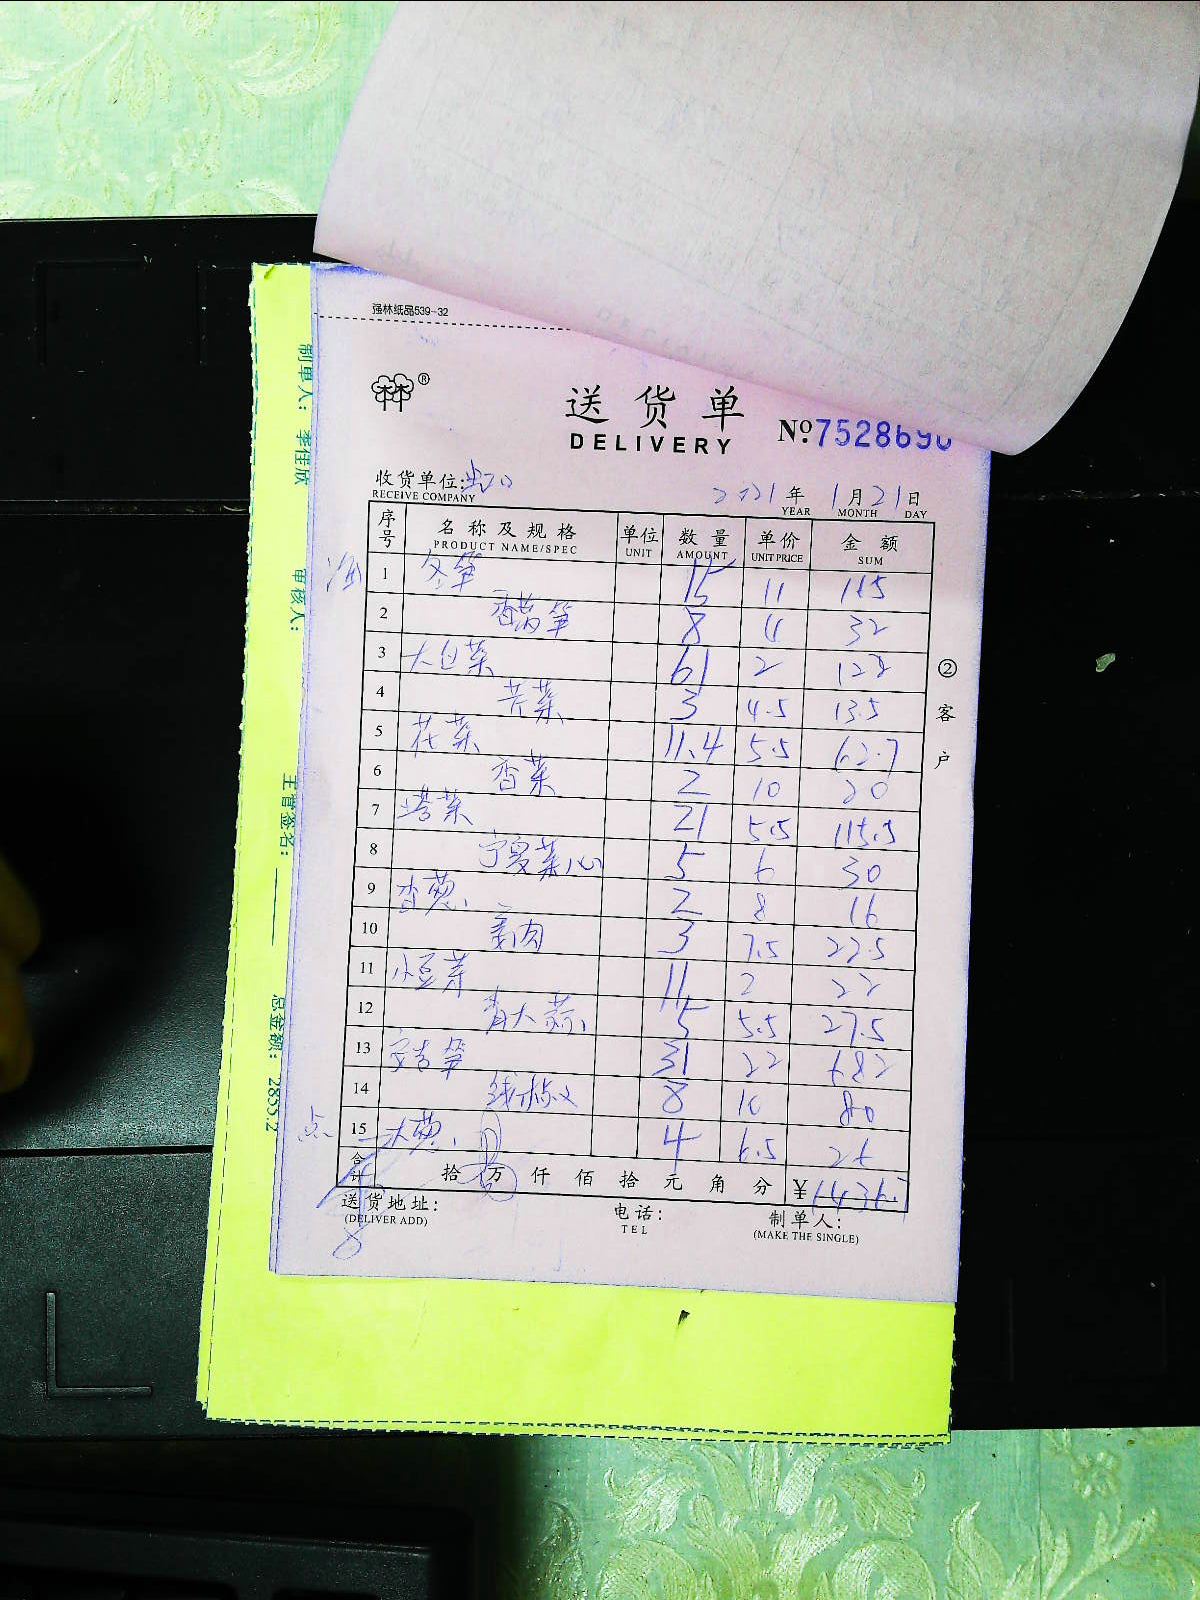 强林纸品539-32
送货单
DELIVERY
№7528690
收货单位:
RECEIVE COMPANY
2021年 1月21日
YEAR MONTH DAY
序号 名称及规格 单位 数量 单价 金额
PRODUCT NAME/SPEC UNIT AMOUNT UNIT PRICE SUM
1 冬笋 15 11 165
2 香莴笋 8 4 32
3 大白菜 61 2 122
4 芹菜 3 4.5 13.5
5 花菜 11.4 5.5 62.7
6 香菜 2 10 20
7 塔菜 21 5.5 115.5
8 宁夏菜心 5 6 30
9 香葱 2 8 16
10 姜肉 3 7.5 22.5
11 小豆芽 11 2 22
12 青大蒜 5 5.5 27.5
13 安吉笋 31 22 682
14 线椒 8 10 80
15 大葱 4 6.5 26
合计 拾万仟佰拾元角分 ¥1436.7
送货地址:
(DELIVER ADD)
电话:
TEL
制单人:
(MAKE THE SINGLE)
②客户
制单人: 李佳欣
审核人:
主管签名:
总金额: 2855.2